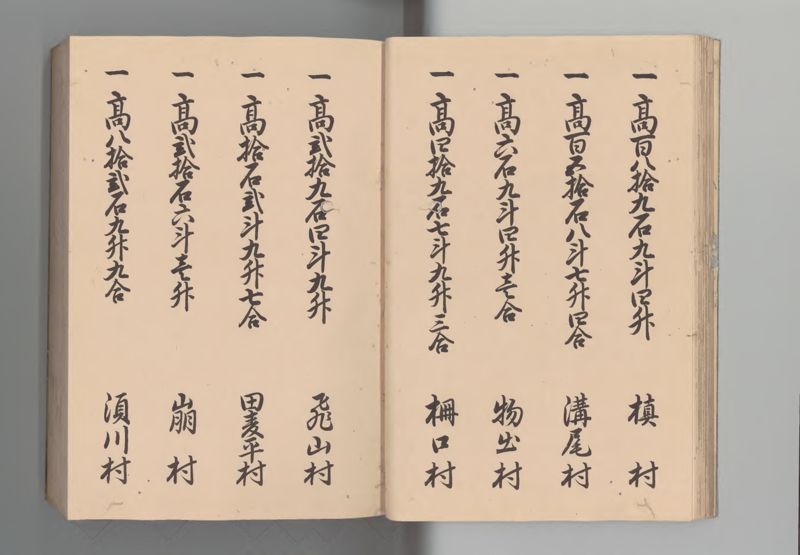 一 高百八拾九石九斗四升 槙村
一 高百五拾石八斗七升四合 溝尾村
一 高六石九斗四升壱合 物出村
一 高四拾九石七斗九升三合 柵口村
一 高弐拾九石四斗九升 飛山村
一 高拾石弐斗九升七合 田麦平村
一 高弐拾石六斗壱升 山崩村
一 高八拾弐石九升九合 須川村